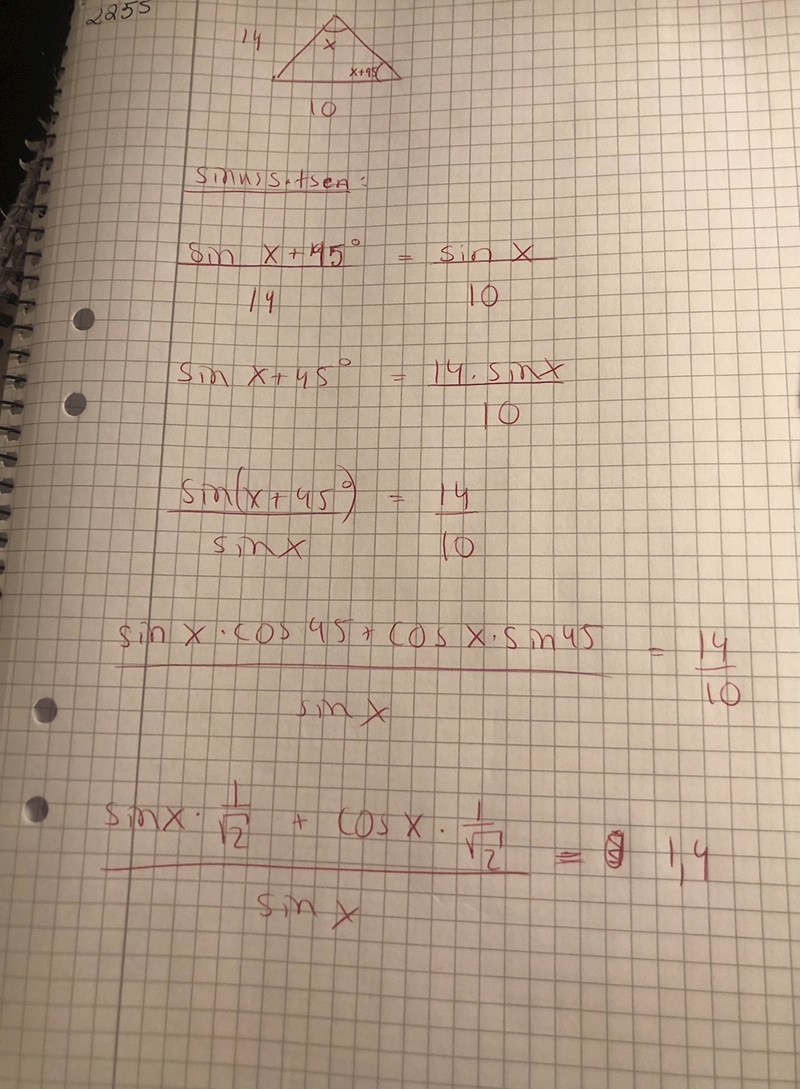 2255
14
x
x+45
10
sinussatsen:
sin x+45° = sin x
14 10
sin x+45° = 14·sinx
10
sin(x+45°) = 14
sinx 10
sin x·cos 45+cos x·sin45 = 14
sin x 10
sinx·1/√2 + cos x·1/√2 = 1,4
sin x